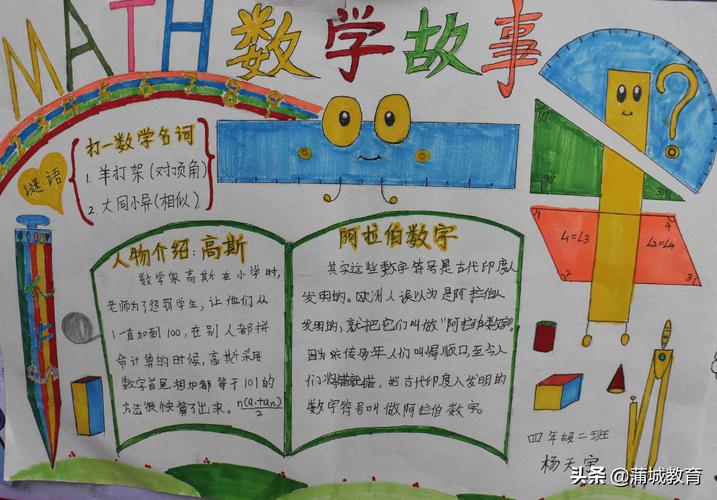 MATH数学故事
1 2 3 4 5 6 7 8 9
打一数学名词
谜语
1. 羊打架(对顶角)
2. 大同小异(相似)
人物介绍:高斯
数学家高斯在小学时,
老师为了惩罚学生,让他们从
1一直加到100,在别人都拼
命计算的时候,高斯采用
数字首尾相加都等于101的
方法很快算了出来。n(a₁+aₙ)/2
阿拉伯数字
其实这些数字符号是古代印度人
发明的。欧洲人误以为是阿拉伯人
发明的,就把它们叫做"阿拉伯数字"。
因为流传多年人们叫得顺口,至今人
们将错就错,把古代印度人发明的
数字符号叫做阿拉伯数字。
60°
90°
30°
?
1
4
∠1=∠3
∠2=∠4
2
3
四年级二班
头条 @蒲城教育